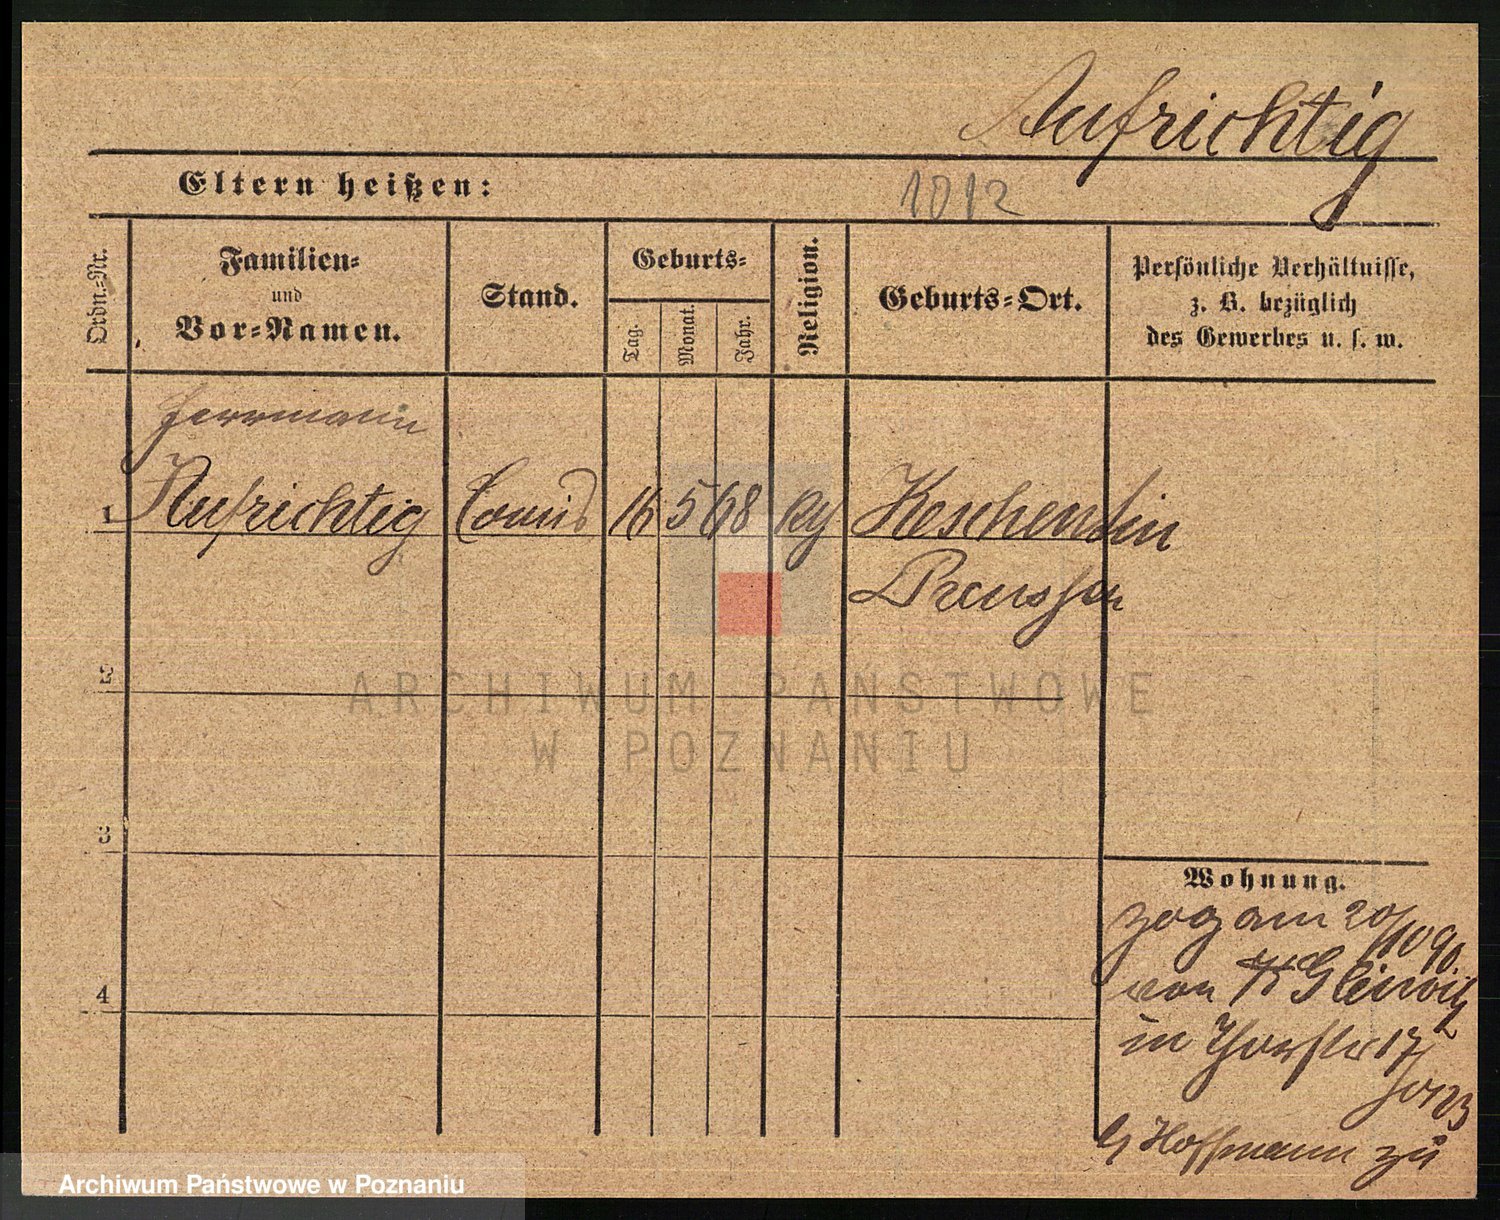 Aufrichtig
Eltern heißen:
1012
Ordn.-Nr.
Familien-
und
Vor-Namen.
Stand.
Geburts-
Tag.
Monat.
Jahr.
Religion.
Geburts-Ort.
Persönliche Verhältnisse,
z. B. bezüglich
des Gewerbes u. s. w.
Herrmann
1 Aufrichtig Comis 16 5 68
Preussen
2
ARCHIWUM PAŃSTWOWE
W POZNANIU
3
Wohnung.
zog am 20/10 90.
von Gleiwitz
4
in 17
Hoffmann zu
Archiwum Państwowe w Poznaniu